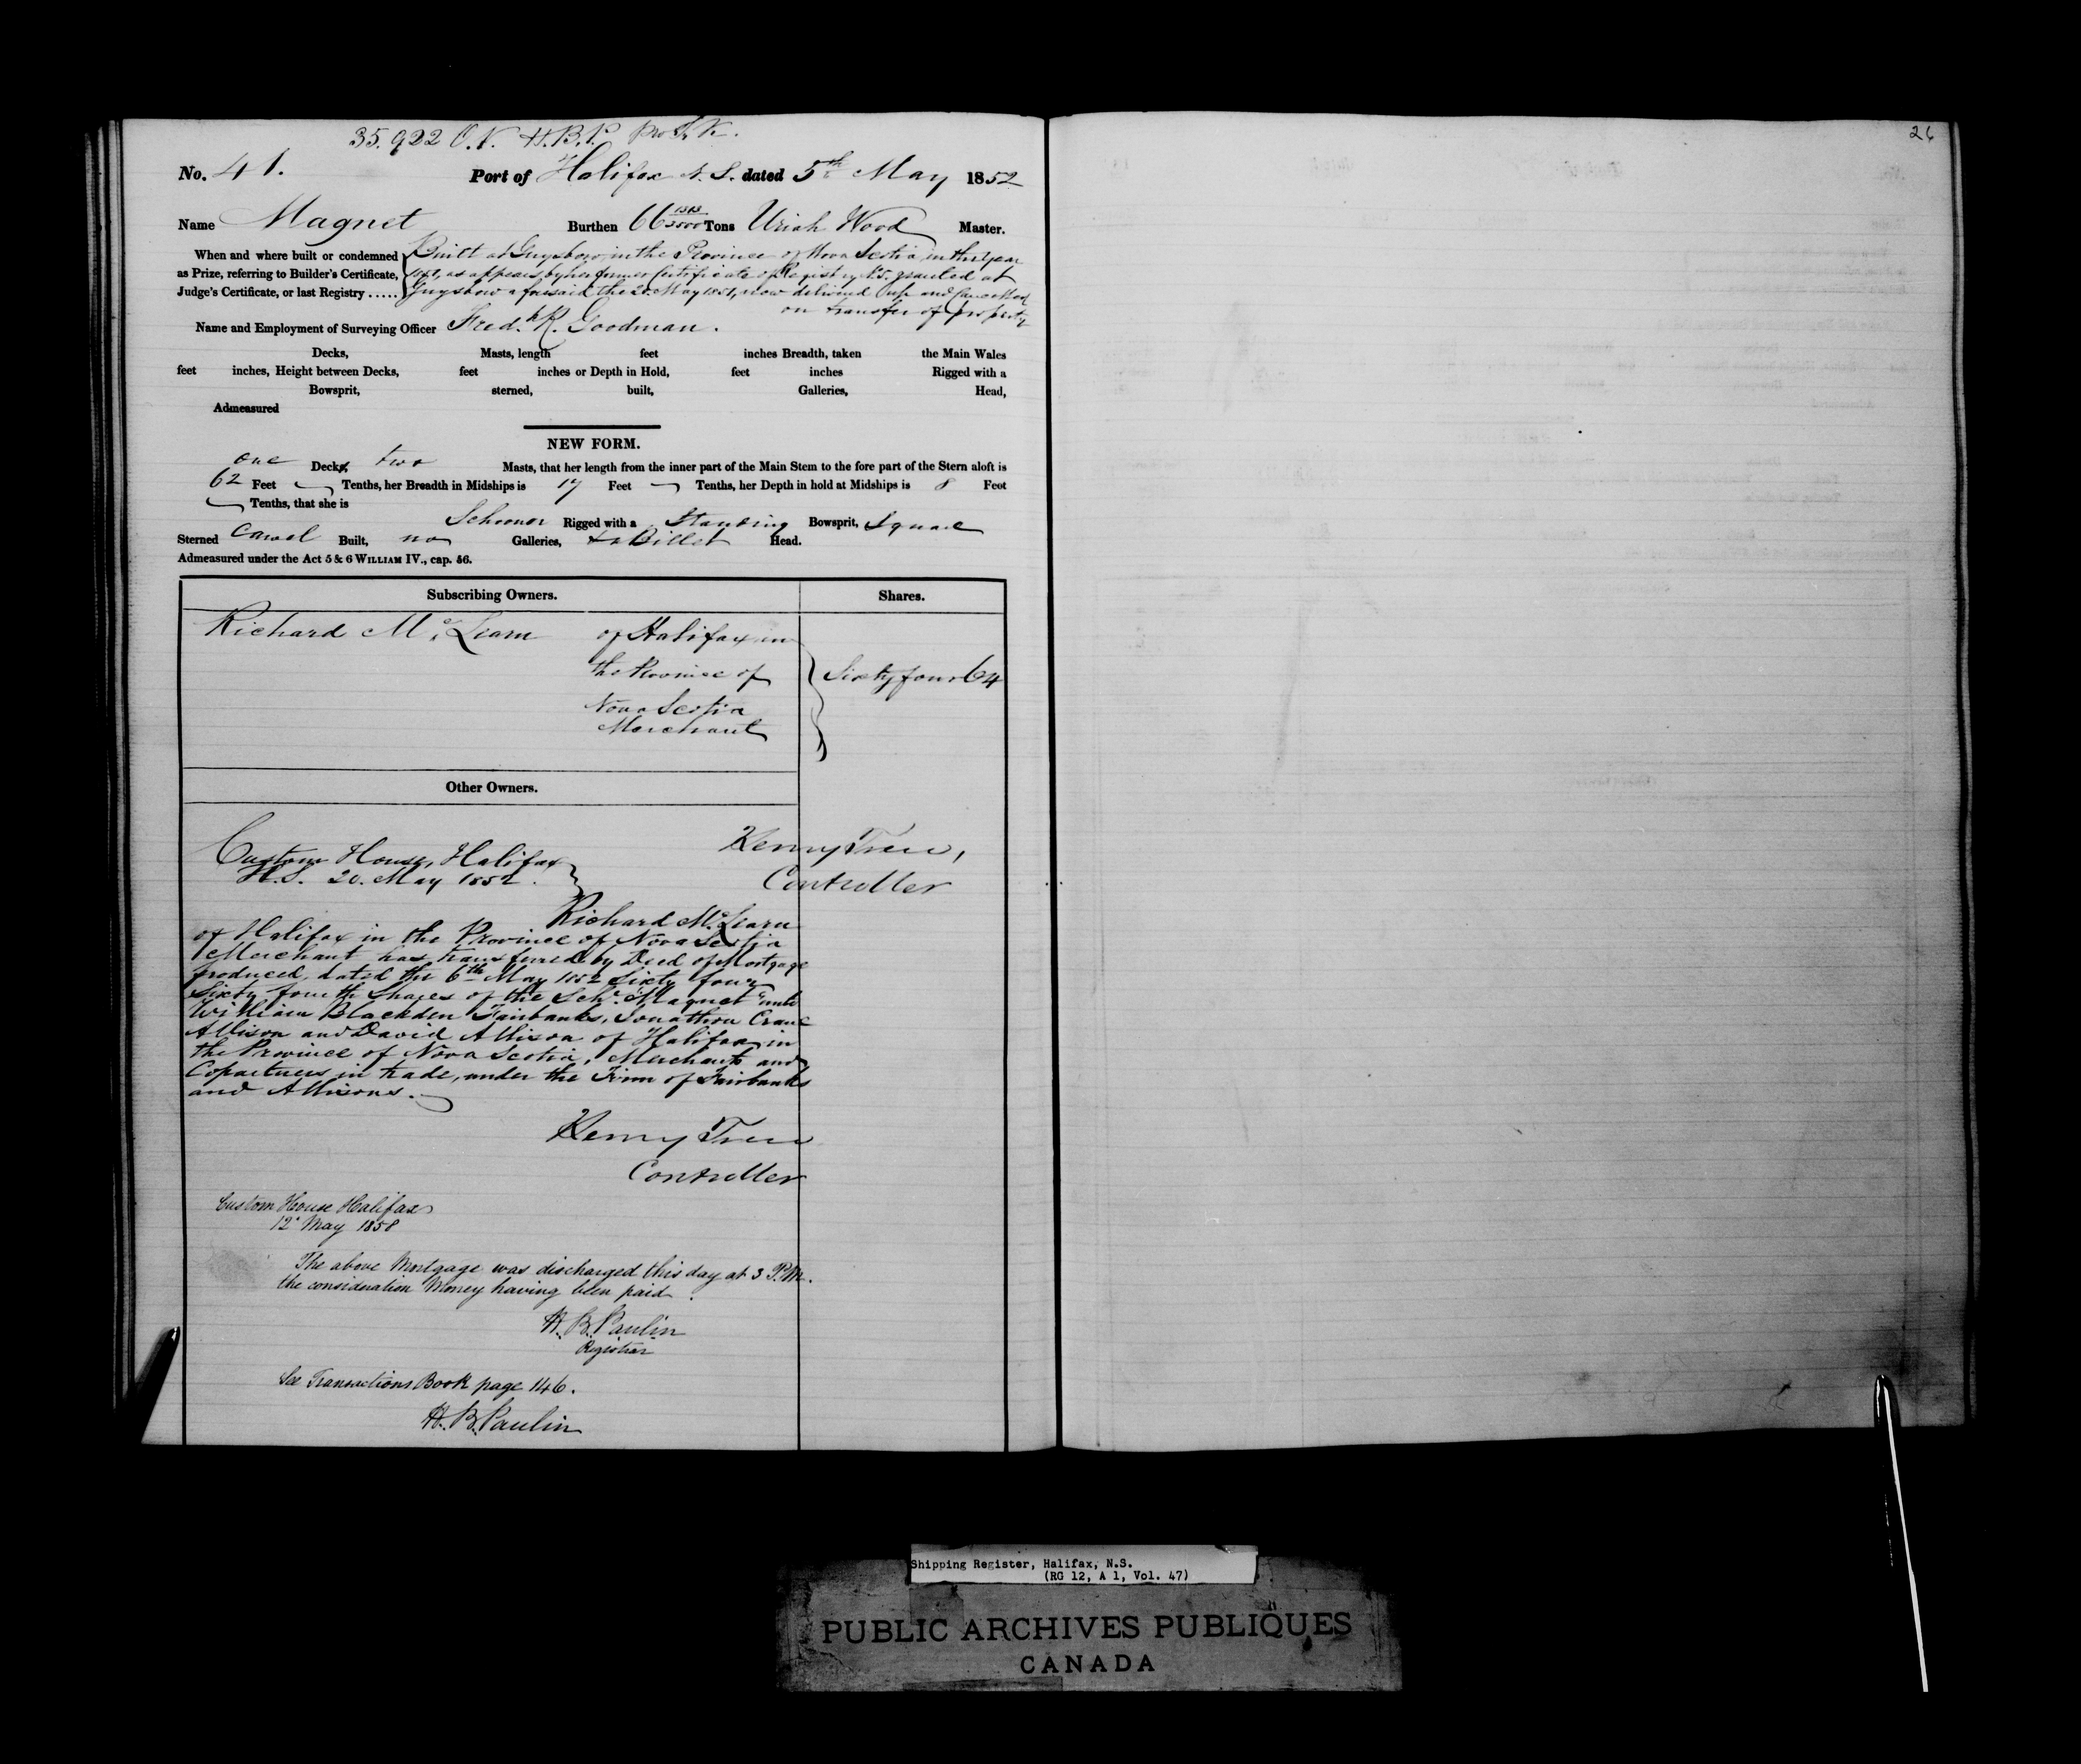 35.922 O.N. H.B.P.
26
No. 41. Port of Halifax N.S. dated 5th May 1852
Name Magnet Burthen 66 1313/3500 Tons Uriah Wood Master.
When and where built or condemned Built at Guysboro in the Province of Nova Scotia, in the Year
as Prize, referring to Builder's Certificate, as appears by her former Certificate of Registry No 5. granted at
Judge's Certificate, or last Registry ..... Guysboro aforesaid the 20 May 1851, now delivered up and Cancelled
on transfer of property
Name and Employment of Surveying Officer Fred.k R. Goodman.
Decks, Masts, length feet inches Breadth, taken the Main Wales
feet inches, Height between Decks, feet inches or Depth in Hold, feet inches Rigged with a
Bowsprit, sterned, built, Galleries, Head,
Admeasured
NEW FORM.
one Decks two Masts, that her length from the inner part of the Main Stem to the fore part of the Stern aloft is
62 Feet Tenths, her Breadth in Midships is 17 Feet Tenths, her Depth in hold at Midships is 8 Feet
Tenths, that she is
Schooner Rigged with a Standing Bowsprit, Square
Sterned Carvel Built, no Galleries, Billet Head.
Admeasured under the Act 5 & 6 WILLIAM IV., cap. 56.
Subscribing Owners. Shares.
Richard McLearn of Halifax in
the Province of Sixty four 64
Nova Scotia
Merchant
Other Owners.
Henry Tree,
Controller
Custom House, Halifax
N.S. 20. May 1852.
Richard McLearn
of Halifax in the Province of Nova Scotia
Merchant has transferred by Deed of Mortgage
produced, dated the 6th May 1852 Sixty four
Sixty fourth Shares of the Schr. "Magnet" unto
William Blackden Fairbanks, Jonathan Crane
Allison and David Allison of Halifax in
the Province of Nova Scotia, Merchants and
Copartners in trade, under the Firm of Fairbanks
and Allisons.
Henry Tree
Controller
Custom House Halifax
12 May 1858
The above Mortgage was discharged this day at 3 P.M.
the consideration Money having been paid.
H. B. Paulin
Registrar
See Transactions Book page 146.
H. B. Paulin
Shipping Register, Halifax, N.S.
(RG 12, A 1, Vol. 47)
PUBLIC ARCHIVES PUBLIQUES
CANADA